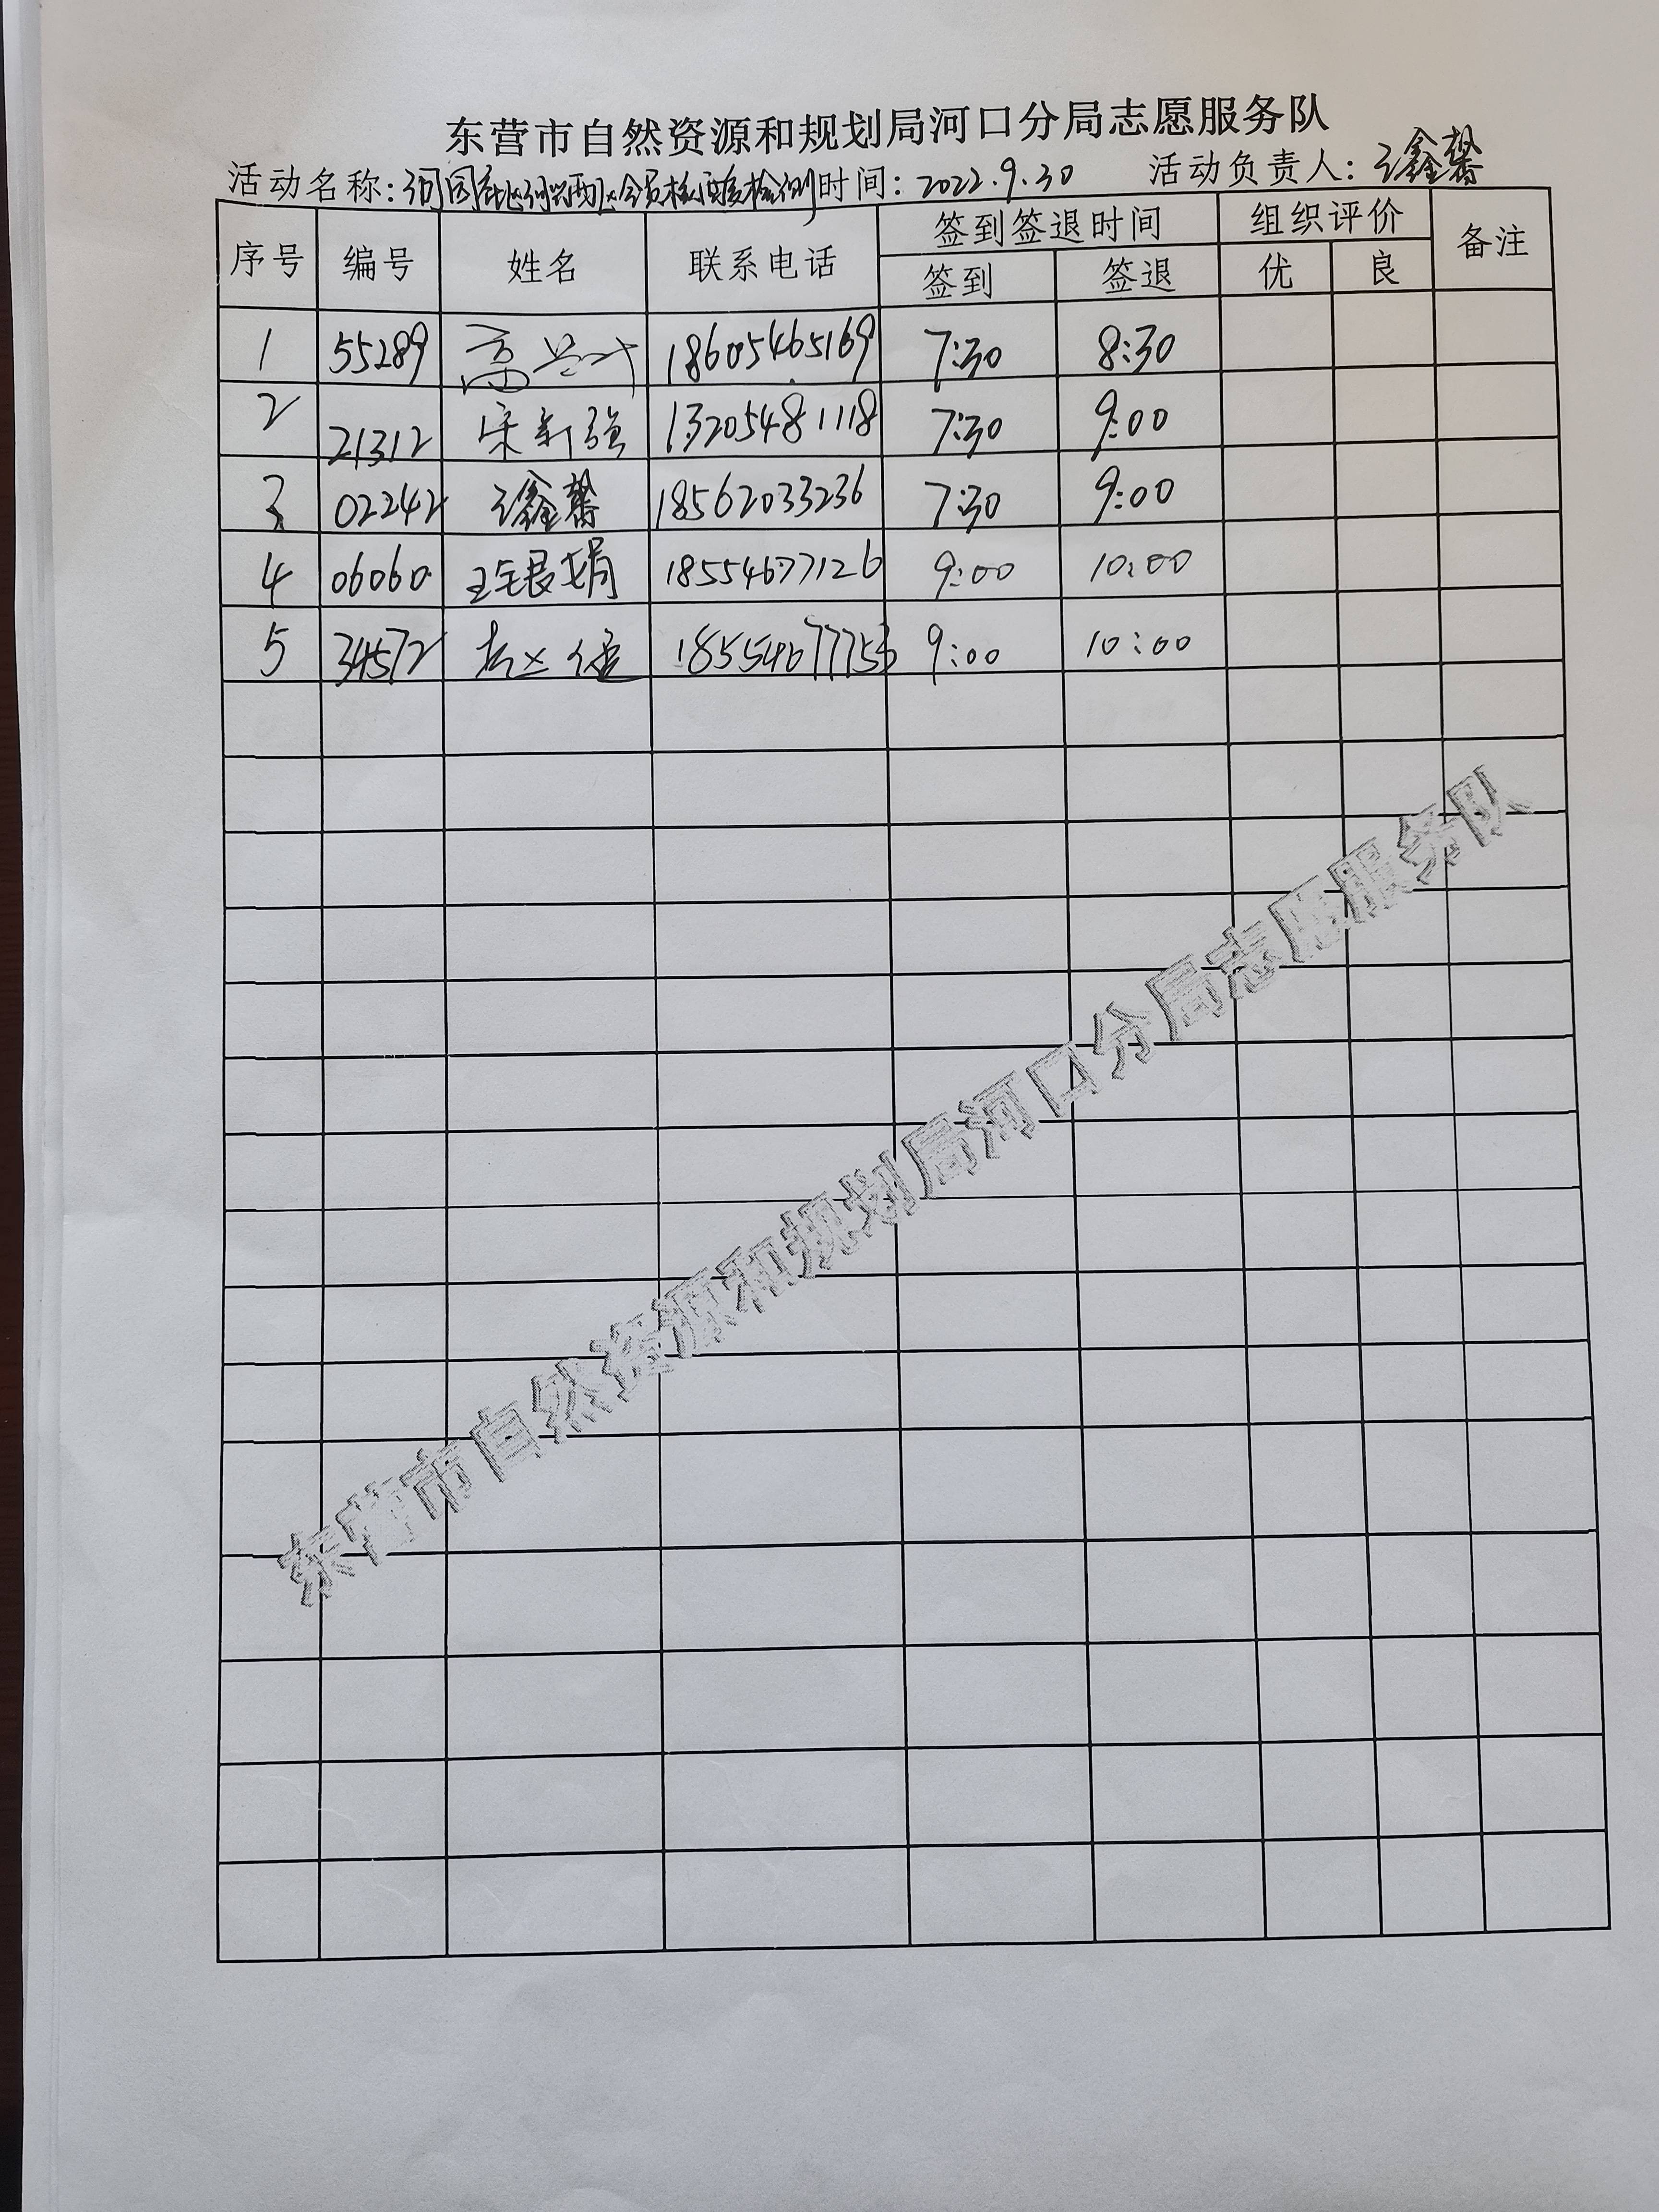 东营市自然资源和规划局河口分局志愿服务队
活动名称:河园社区河兴西区全员核酸检测 时间:2022.9.30 活动负责人:鑫馨
序号 编号 姓名 联系电话 签到签退时间 组织评价 备注
签到 签退 优 良
1 55289 高 18605465169 7:30 8:30
2 21312 宋新强 13205481118 7:30 9:00
3 02242 鑫馨 18562033236 7:30 9:00
4 06060 王银娟 18554677126 9:00 10:00
5 34572 18554677753 9:00 10:00
东营市自然资源和规划局河口分局志愿服务队